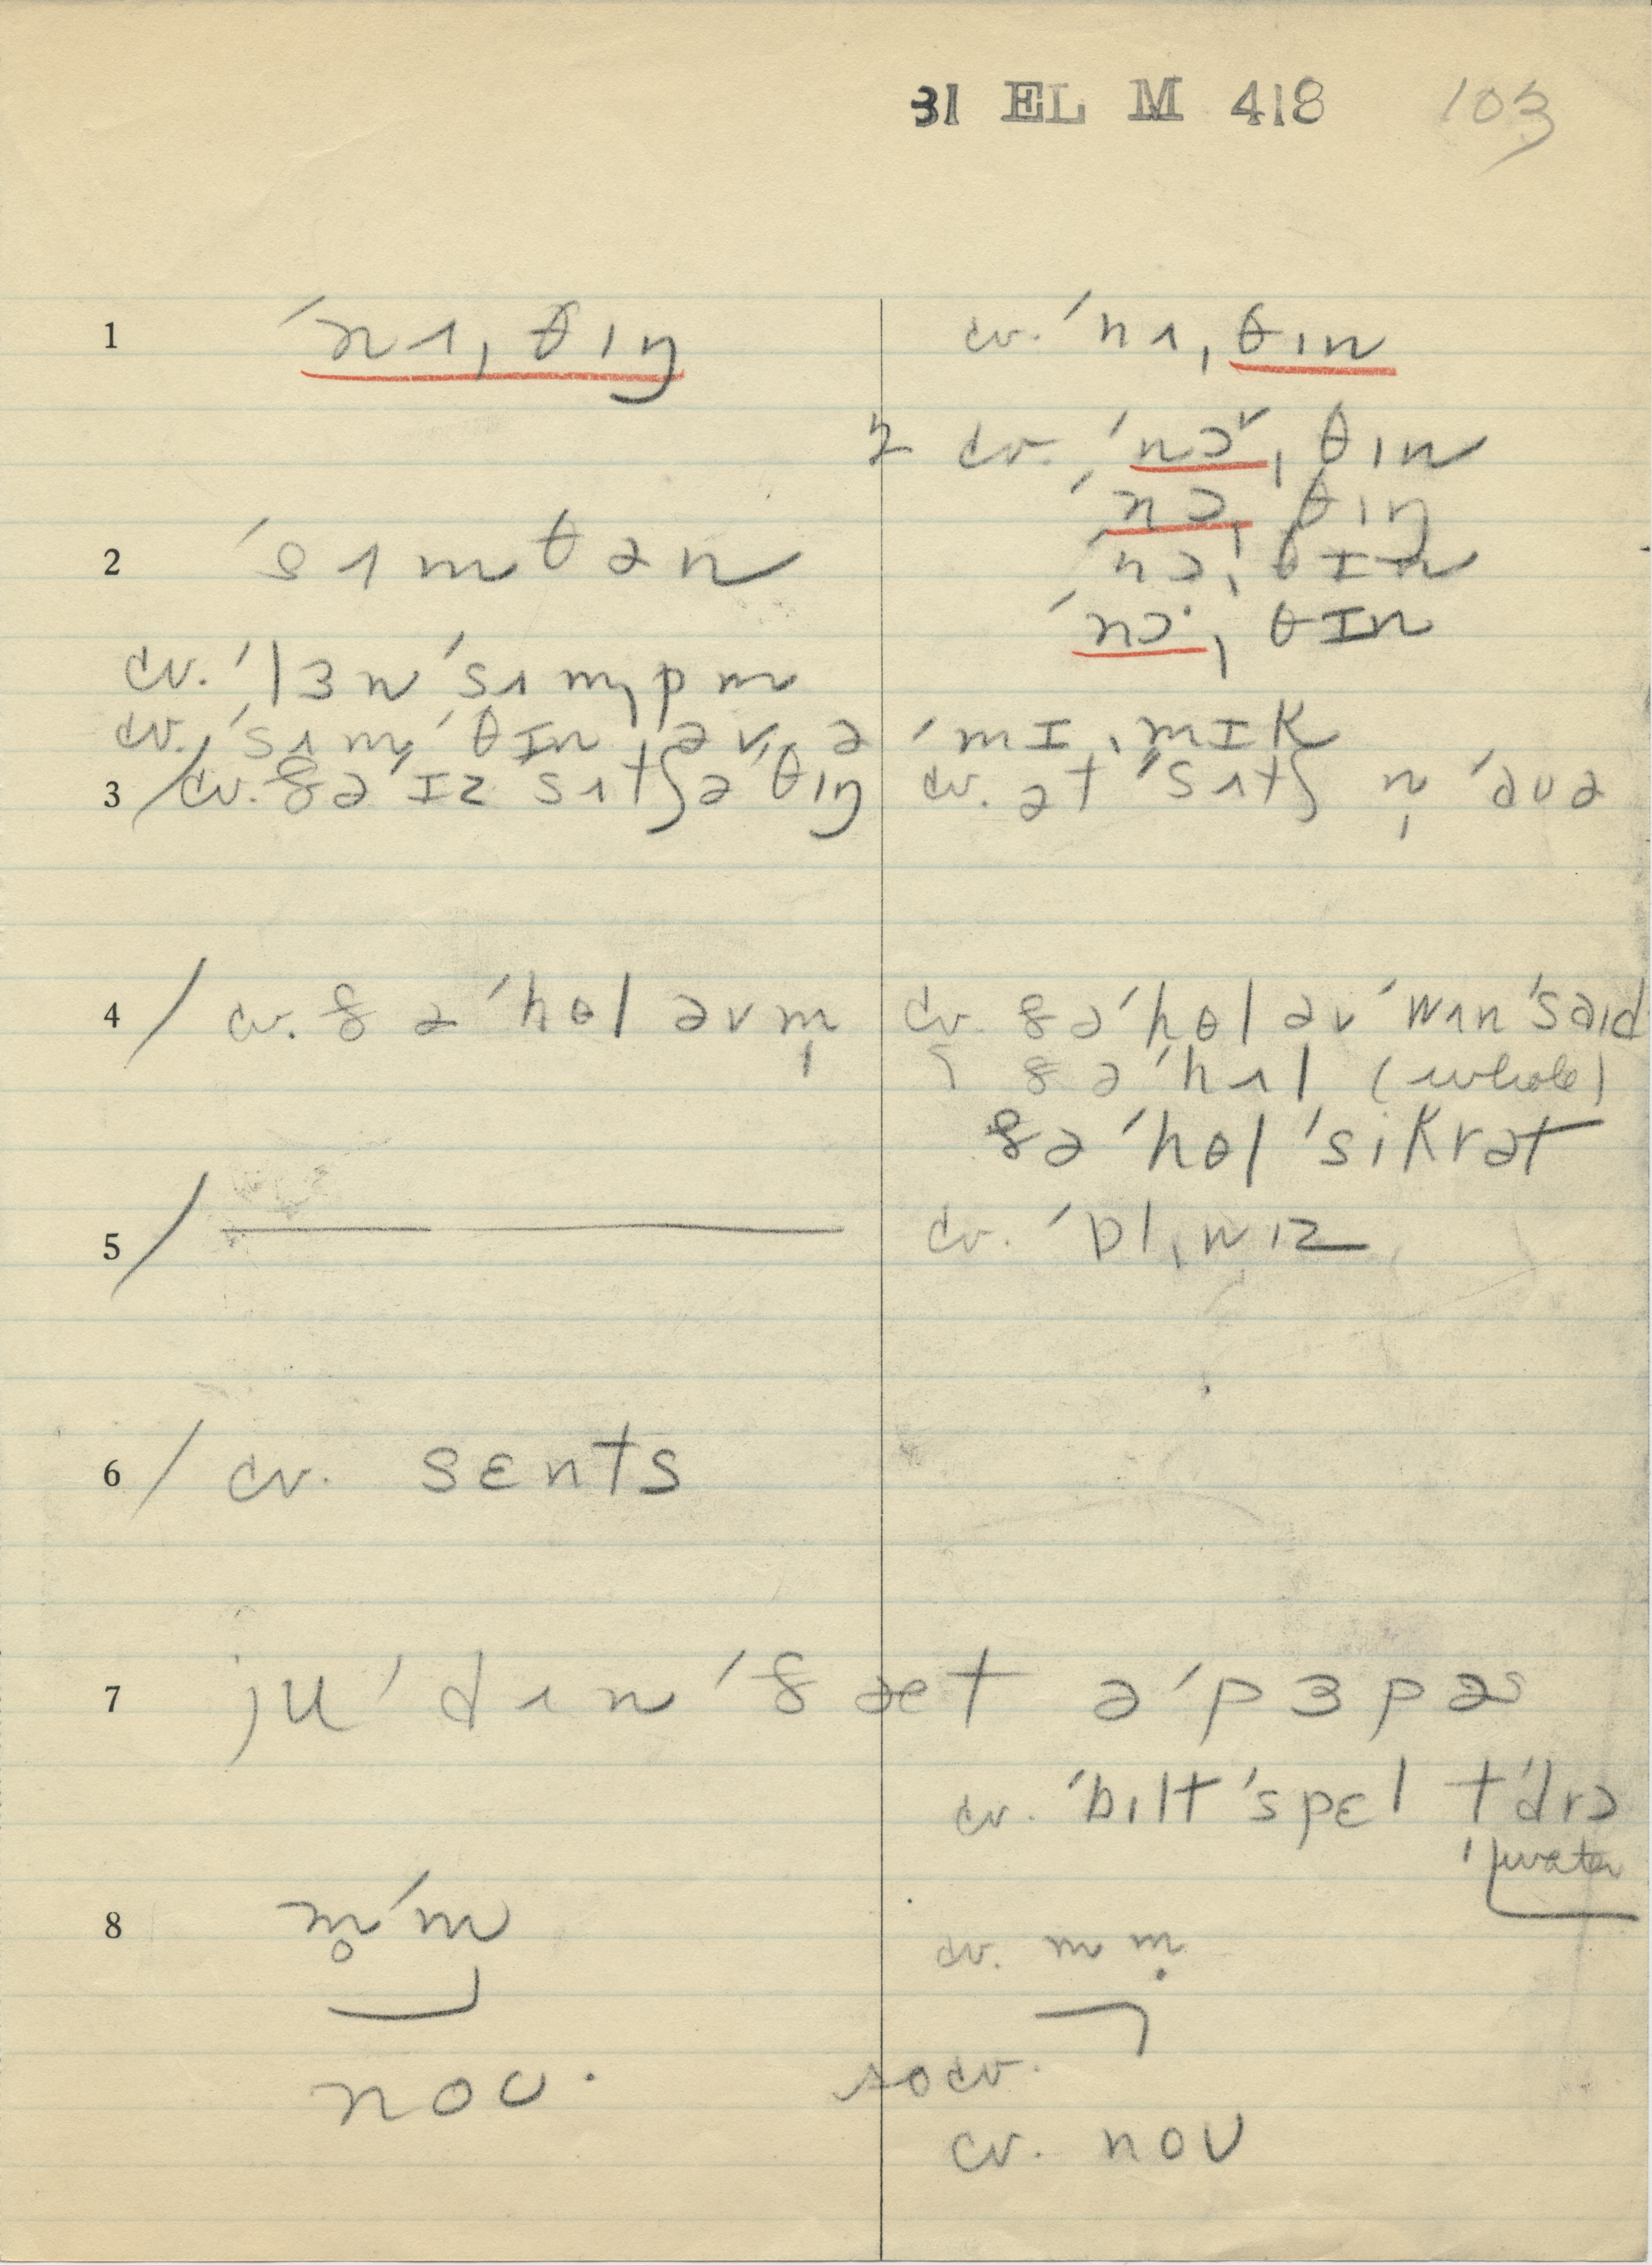 31 EL M 418 103
1 ˈnʌˌθɪŋ cv. ˈnʌˌθɪn
cv. ˈnɔ˅ˌθɪn
ˈnɔˌθɪŋ
2 ˈsʌmθən ˈnɔˌθɪn
ˈnɔ·ˌθɪn
cv. ˈlɜn ˈsʌmˌpm
cv. ˈsʌmˈθɪn əv ə ˈmɪˌmɪk
3 / cv. ðəˈɪz sʌtʃ ə ˈθɪŋ cv. ət ˈsʌtʃ n̩ ˈaʊə
4 / cv. ðə ˈhɵl əvm̩ cv. ðə ˈhɵl əv ˈwʌn ˈsaɪd
ðə ˈhʌl (whole)
ðə ˈhɵl ˈsikrət
5 / cv. ˈbɪˌnɪz
6 / cv. sɛnts
7 ju ˈdʌn ˈðæt ə ˈpɜpəs
cv. ˈbɪlt ˈspɛl tˈdrɔ
water
8 m̥ˈm cv. m m̩
noʊ· so cv.
cv. noʊ